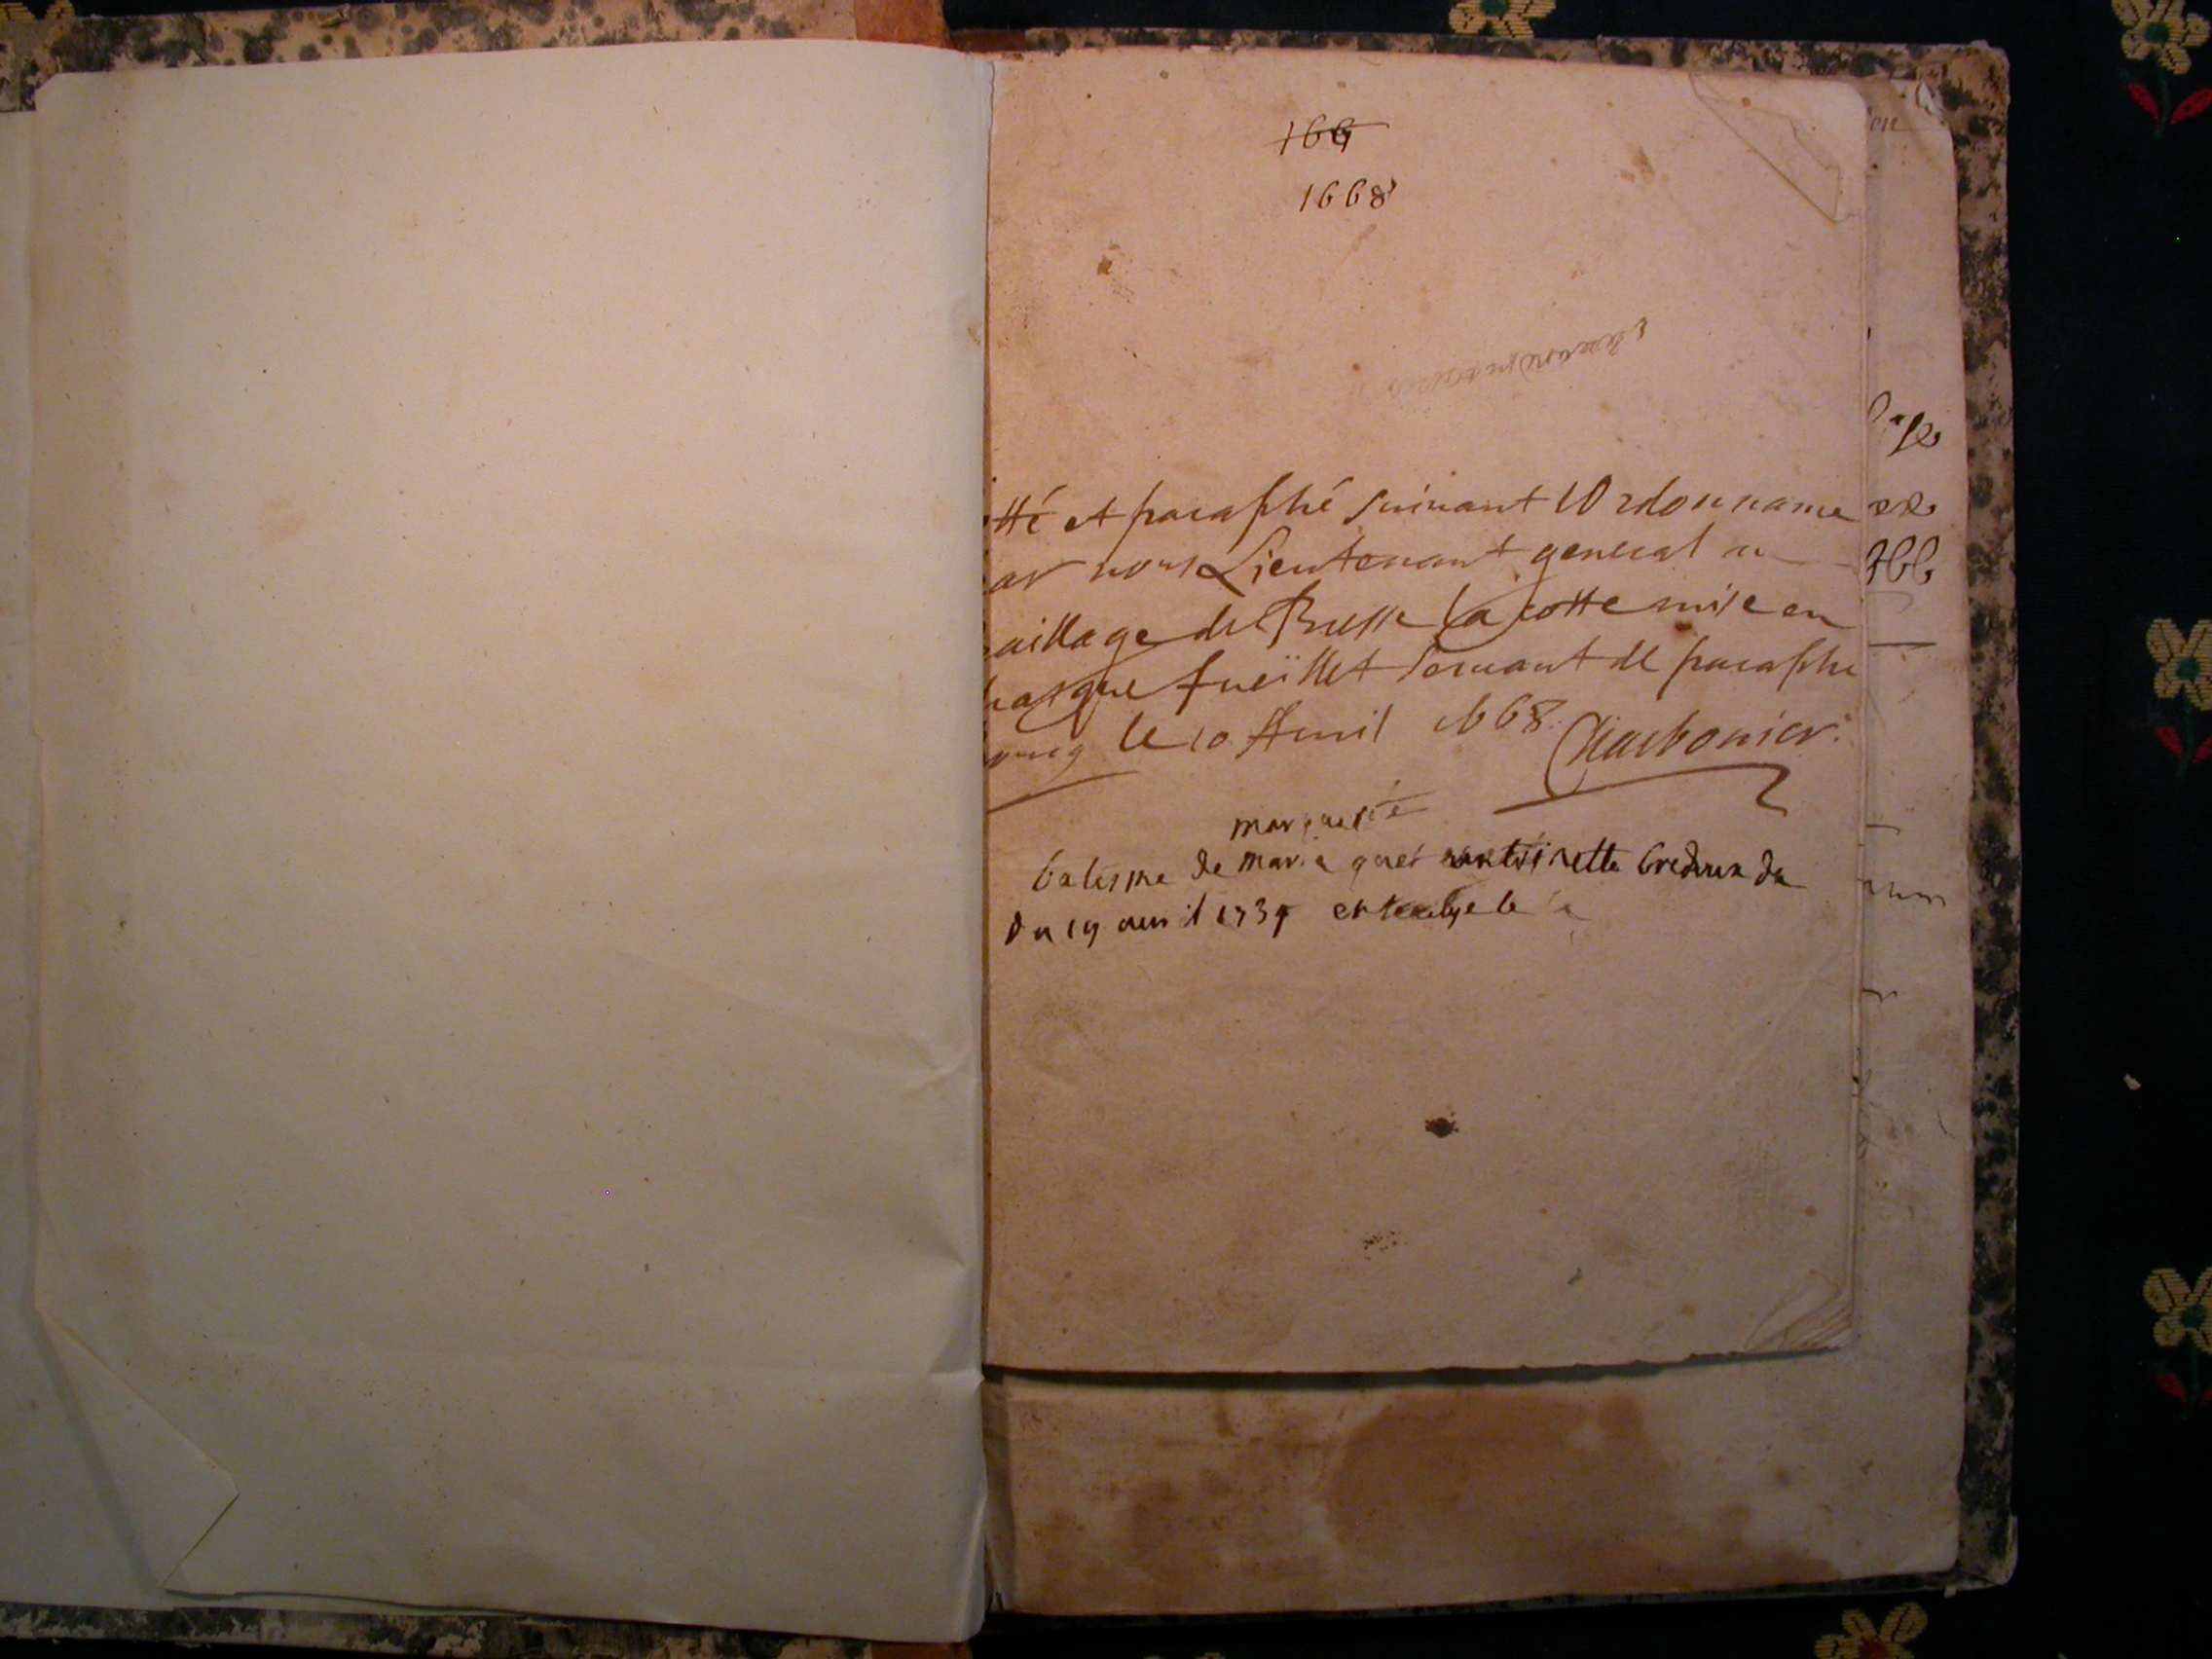 166
1668
tté et paraphé suivant l'Ordonnance
ar nous Lieutenant general au
aillage de Bresse la cotte mise en
hasque fueillet servant de paraphe
ourg le 10 Auril 1668. Charbonier
marguerite
batesme de maria antoinette
du 19 auril 1739